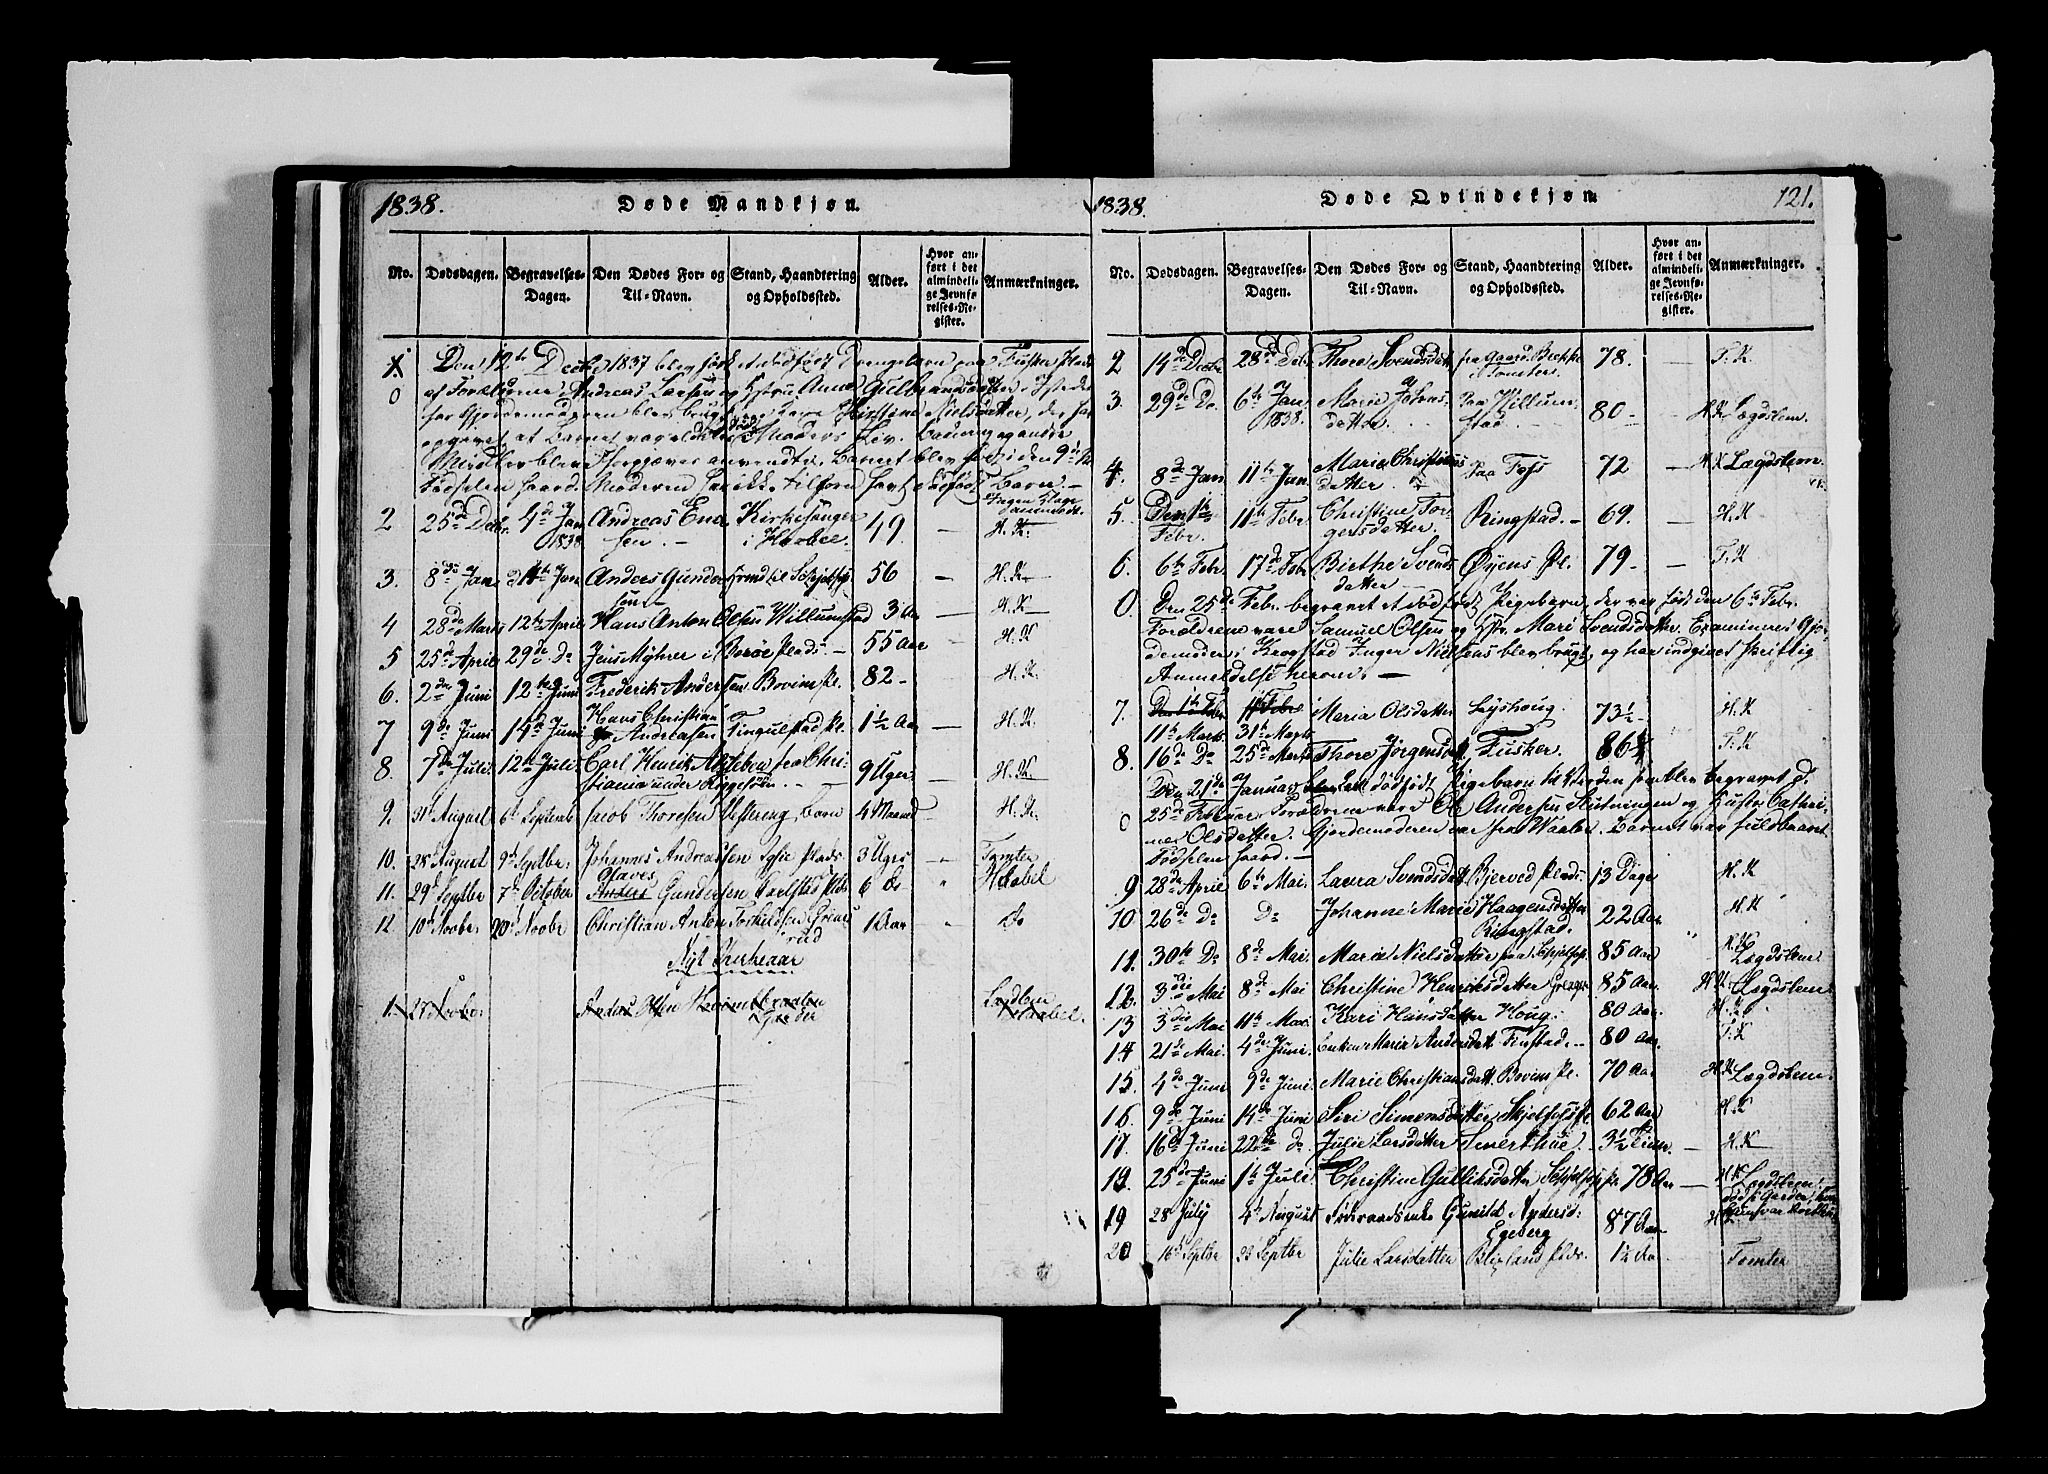 1838. Døde Mandkjøn.
No. Dødsdagen. Begravelses-Dagen. Den Dødes For- og Til-Navn. Stand, Haandtering og Opholdssted. Alder. Hvor anført i det almindelige Jevnførelses-Register. Anmærkninger.
1. Den 12te Decbr 1837 blev født et dødfødt Drengebarn paa Fusker Plads
0 af Forældrene Andreas Larsen og Hustru Anne Gulbrandsdatter. I Stedet
for Gjordemoderen blev brugt Kirstine Nielsdatter, der har
opgivet at Barnet var Moders Liv. Badning og andre
Midler blev forgjæves anvendte. Barnet blev
Fødselen haard. Moderen har ikke tilforn havt dødfødt Barn.
2 25de Decbr 4de Jan 1838 Andreas Ena- sen Kirkesanger i Haabel. 49 — H. K.
3. 8de Jan 11te Jan Anders Gunder- sen 56 — H. K.
4 28de Marts 12te April Hans Anton Olsen Willumstad 3 Aar — H. K.
5 25de April 29de Do Jens Myhrer i Berøe Plads 55 Aar — H. K.
6. 2den Juni 12te Juni Frederik Andersen Bovim Pl. 82 — H. K.
7 9de Juni 14de Juni Hans Christian Andersen Tingulstad Pl. 1½ Aar — H. K.
8. 7de Juli 12te Juli Carl Henrik fra Christiania under 9 Uger — H. K.
9. 31te August 6te Septemb Jacob Thoresen Vestereng, Barn 4 Maaned H. K.
10. 28 August 9de Septbr. Johannes Andreassen Plads 3 Uger " Tomter
11. 29de Septbr 7de October Olaves Gundersen Carlstad Plds 6 " Haabel
12. 10de Novbr 20de Novbr Christian Anton Torkildsen Grimsrud 1 Aar " do
Nyt Kirkeaar
1. 27 Novbr. Anders Olsen Haabel.
1838. Døde Qvindekjøn 121.
No. Dødsdagen. Begravelses-Dagen. Den Dødes For- og Til-Navn. Stand, Haandtering og Opholdssted. Alder. Hvor anført i det almindelige Jevnførelses-Register. Anmærkninger.
2 14de Decbr 28de Debr. Thore Svendsdatt fra Gaard. Bække i Tomter 78. — T. K
3. 29de Do. 6te Jan 1838. Marie Johns- datter paa Willum- stad. 80 H. K. Lægdslem.
4. 8de Jan 11te Jan. Marie Christians datter paa 72 — H. K Lægdslem.
5. Den 1te Febr. 11te Febr. Christine Tor- gersdatter Ringstad. 69. — H. K
6. 6te Febr. 17de Febr Birthe Svends datter Øyens Pl. 79 — T. K
0. Den 25de Febr. begravet et dødfødt Pigebarn, der var født den 6te Febr.
Forældrene vare Samuel Olsen og Hstr. Mari Svendsdatter. Examineret Gjor-
demoder i Krogstad Inger Nielsens blev brugt, og har indgivet skriftlig
Anmeldelse herom. —
7. 11te Marts. 31te Marts Maria Olsdatter Lyshoug. 73½ H. K
8. 16de Do 25de Marts Thore Jørgensdatt. Fusker. 86½ T. K
Den 21de Januar dødfødt Pigebarn til Verden som blev begravet d.
0 25de Februar. Forældrene vare Ole Andersen og Hustr. Cathri-
ne Olsdatter. Gjordemoderen var fra Waaler. Barnet var fuldbaaret
Fødselen haard. —
9 28de April 6te Mai. Laura Svendsdatt. Bjerved Plads. 13 Dage H. K
10 26de Do Do Johanne Marie Haagensdatter Ringstad. 22 Aar. H. K
11. 30te Do 8de Mai. Maria Nielsdatter paa 85 Aar " H. K. Lægdslem.
12. 3die Mai 8de Mai Christine Henriksdatter 85 Aar. H. K. Lægdslem.
13 3die Mai 11te Mai. Kari Hansdatter Houg. 80 Aar. H. K.
14 21de Mai. 4de Juni. Maria Andersdatt. Finstad. 80 Aar. T. K.
15. 4de Juni 9de Juni. Marie Christiansdatt. Bovim Pl. 70 Aar H. K. Lægdslem.
16. 9de Juni 14de Juni Siri Simensdatter, 62 Aar H. K
17. 16de Juni 22de do. Julie Larsdatter Smerthue. 3½ Time. — H. K
19. 25de Juni 1te Juli. Christine Gulliksdatter 78 Aar — H. K. Lægdslem,
19 28 July 4de August Gunild Andersd: Egeberg 87 Aar H
20 16de Septbr 23 Septbr Julie Larsdatter Plds. 1½ Aar Tomter